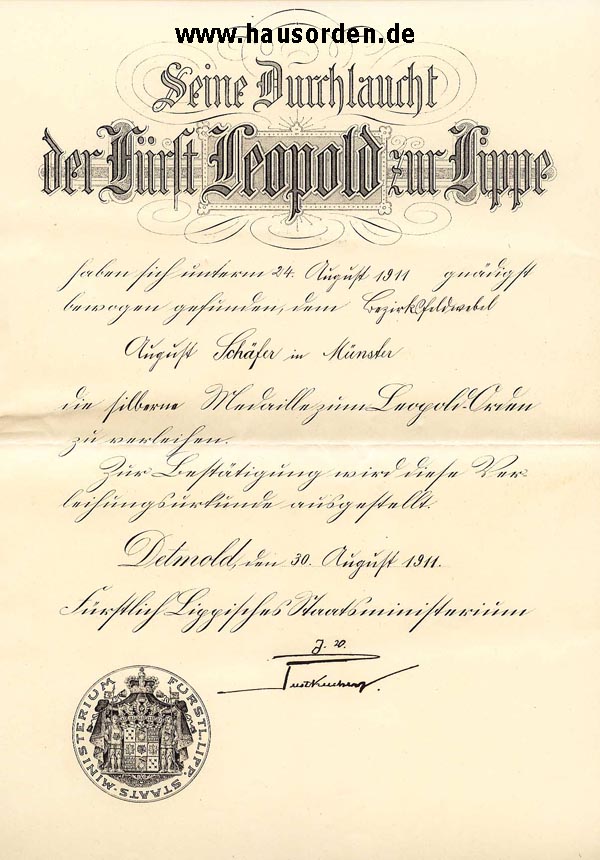 www.hausorden.de
Seine Durchlaucht
der Fürst Leopold zur Lippe
haben sich unterm 24. August 1911 gnädigst
bewogen gefunden, dem Bezirksfeldwebel
August Schäfer in Münster
die silberne Medaille zum Leopold-Orden
zu verleihen.
Zur Bestätigung wird diese Ver-
leihungsurkunde ausgestellt.
Detmold, den 30. August 1911.
Fürstlich Lippisches Staatsministerium
J. V.
FÜRSTL. LIPP. STAATS-MINISTERIUM